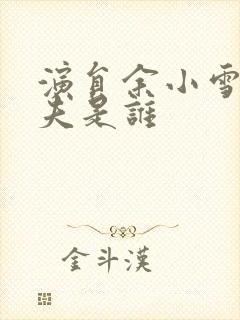 演員余小雪
夫是誰
金斗漢